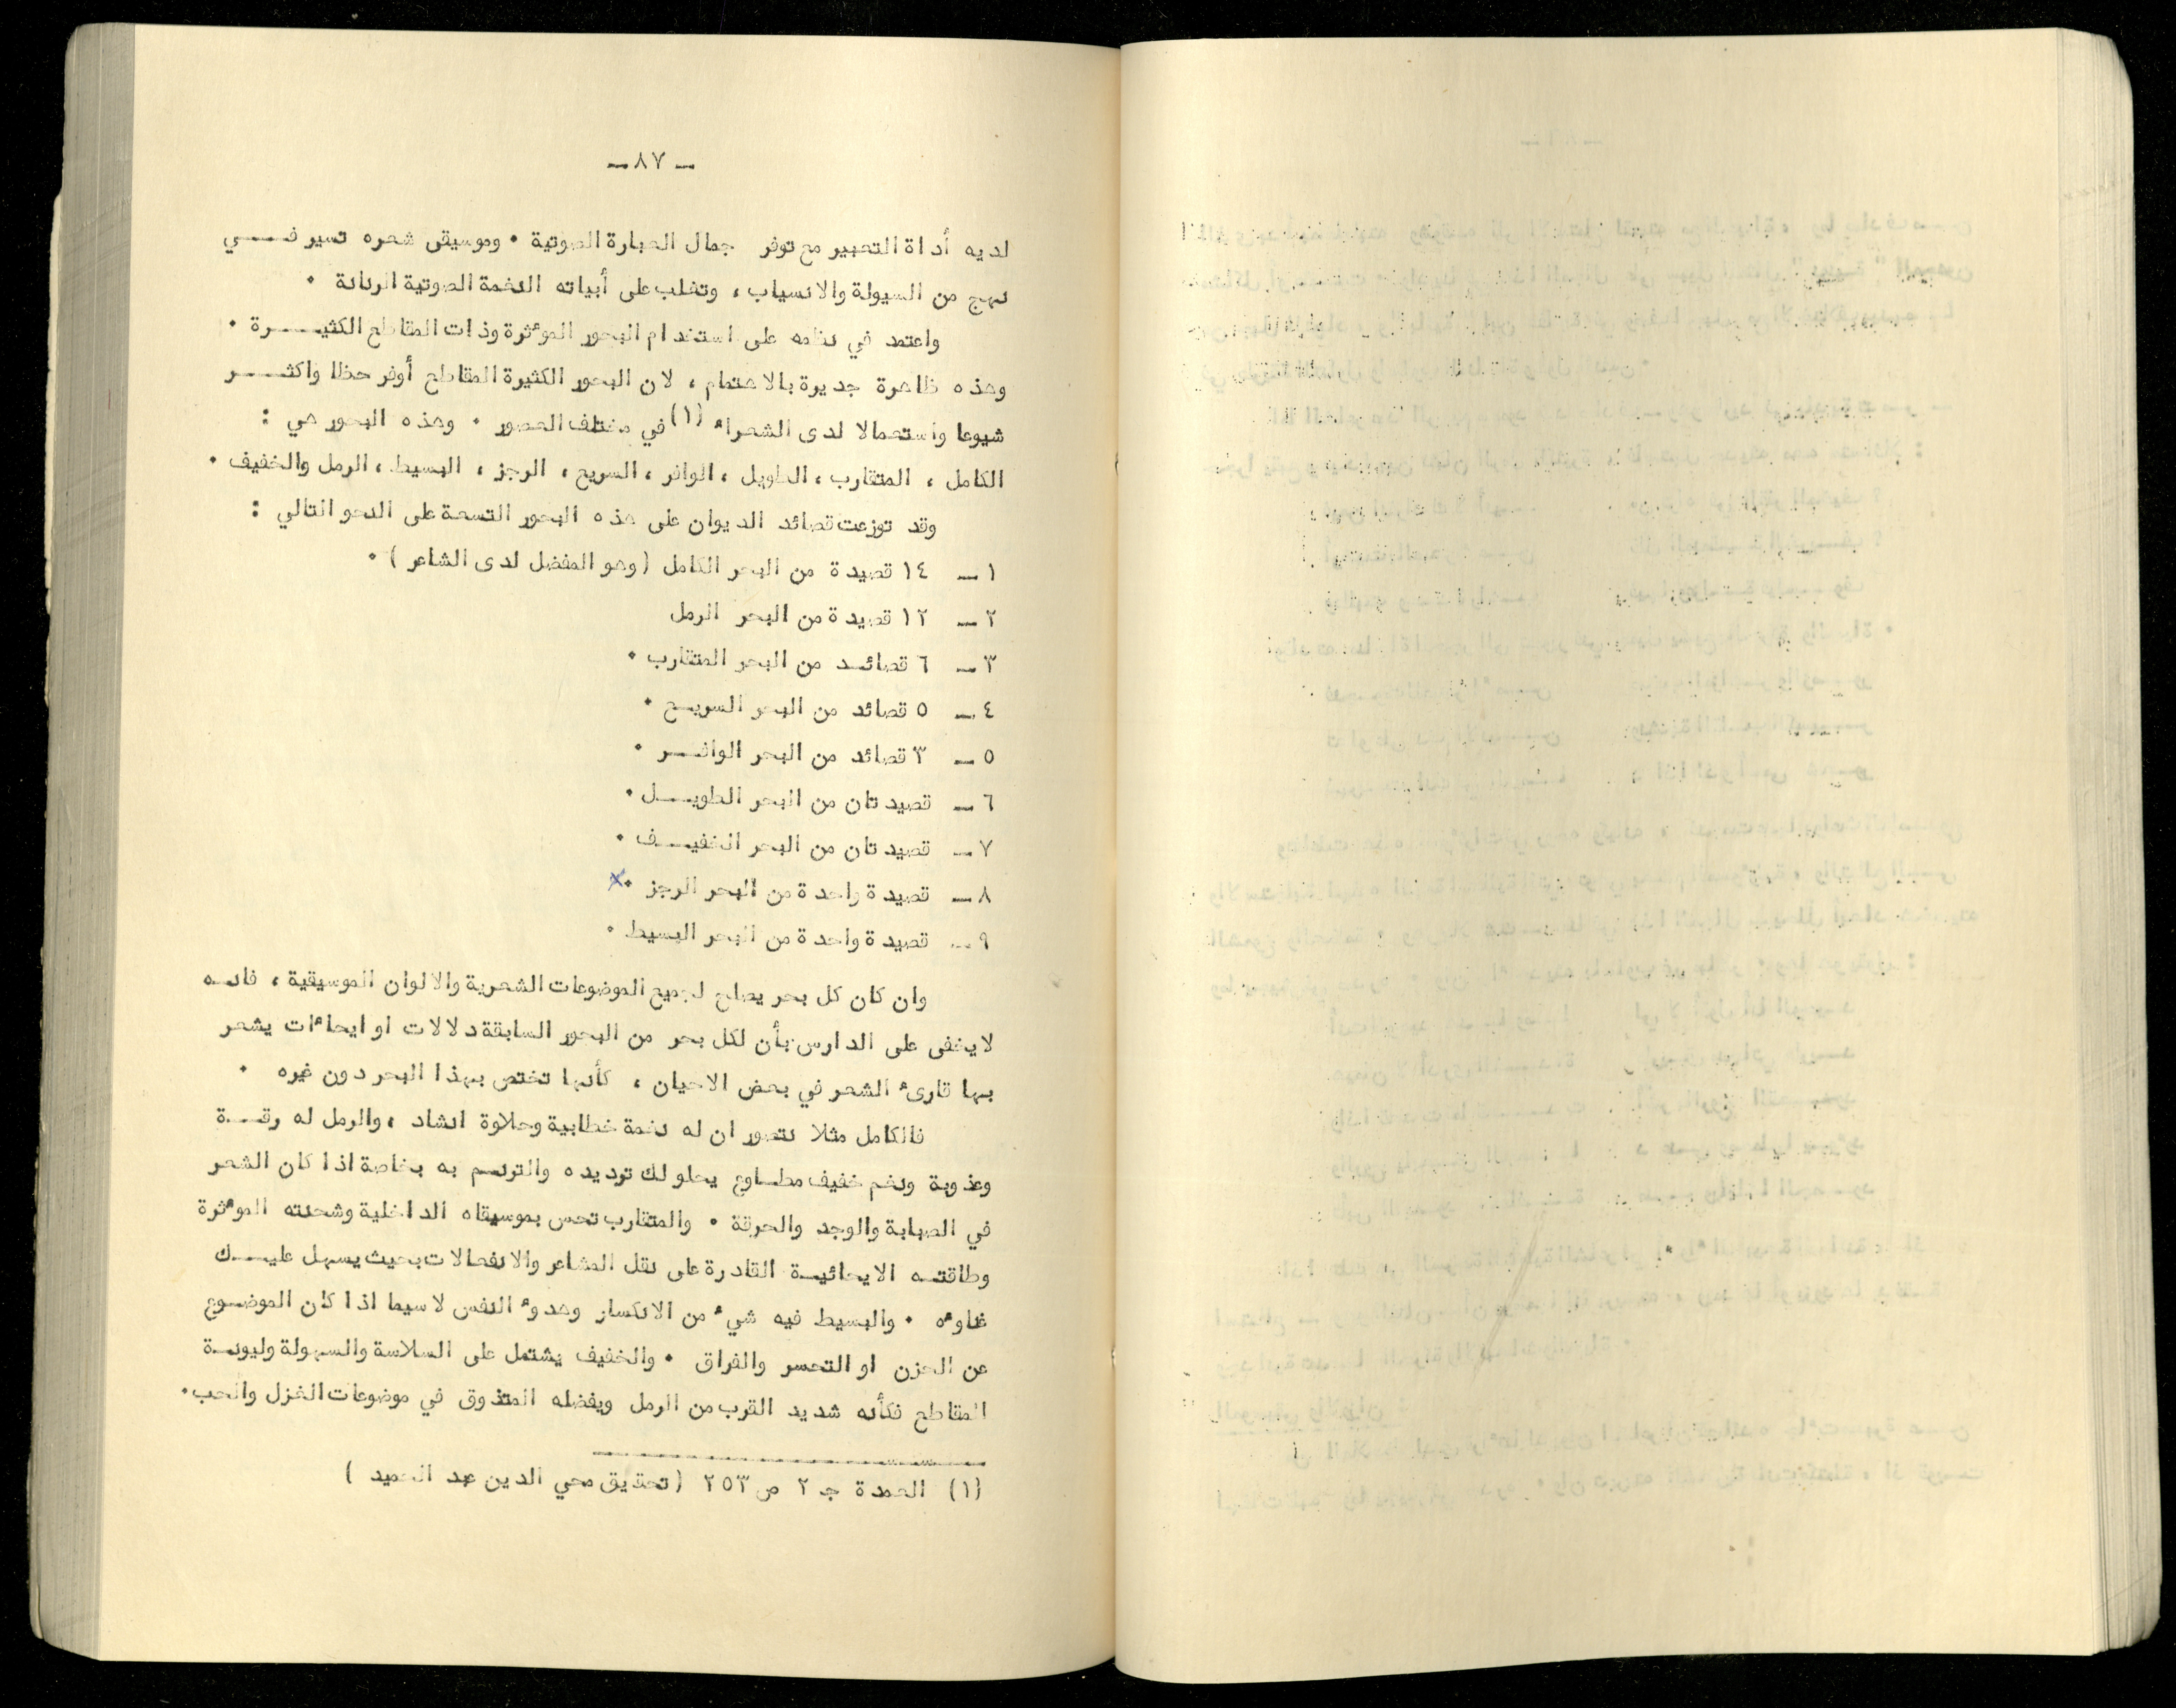 ـ ٨٧ ـ
لديه أداة التعبير مع توفر جمال العبارة الصوتية . وموسيقى شعره تسير فــي
نهج من السيولة والانسياب ، وتغلب على أبياته النغمة الصوتية الرنانة .
واعتمد في نظمه على استخدام البحور المؤثرة وذات المقاطع الكثيــرة .
وهذه ظاهرة جديرة بالاهتمام ، لان البحور الكثيرة المقاطع أوفر حظا واكثــر
شيوعا واستعمالا لدى الشعراء (١) في مختلف العصور . وهذه البحور هي :
الكامل ، المتقارب ، الطويل ، الوافر ، السريع ، الرجز ، البسيط ، الرمل والخفيف .
وقد توزعت قصائد الديوان على هذه البحور التسعة على النحو التالي :
١ ـ ١٤ قصيدة من البحر الكامل (وهو المفضل لدى الشاعر ) .
٢ ـ ١٢ قصيدة من البحر الرمل
٣ ـ ٦ قصائد من البحر المتقارب .
٤ ـ ٥ قصائد من البحر السريع .
٥ ـ ٣ قصائد من البحر الوافــر .
٦ ـ قصيدتان من البحر الطويــل .
٧ ـ قصيدتان من البحر الخفيــف .
٨ ـ قصيدة واحدة من البحر الرجز . x
٩ ـ قصيدة واحدة من البحر البسيط .
وان كان كل بحر يصلح لجميع الموضوعات الشعرية والالوان الموسيقية ، فانــه
لا يخفى على الدارس بأن لكل بحر من البحور السابقة دلالات او ايحاءات يشعر
بها قارىء الشعر في بعض الاحيان ، كأنها تختص بهذا البحر دون غيره .
فالكامل مثلا نتصور ان له نغمة خطابية وحلاوة انشاد ، والرمل له رقــة
وعذوبة ونغم خفيف مطــاوع يحلو لك ترديده والترنــم به بخاصة اذا كان الشعر
في الصبابة والوجد والحرقة . والمتقارب تحس بموسيقاه الداخلية وشحنته المؤثرة
وطاقتــه الايحائيــة القادرة على نقل المشاعر والانفعالات بحيث يسهل عليــك
غناؤه . والبسيط فيه شيء من الانكسار وهدوء النفس لاسيما اذا كان الموضــوع
عن الحزن او التحسر والفراق . والخفيف يشتمل على السلاسة والسهولة وليونــة
المقاطع فكأنه شديد القرب من الرمل ويفضله المتذوق في موضوعات الغزل والحب .
(١) العمدة جـ ٢ ص ٢٥٣ (تحقيق محي الدين عبد الحميد )